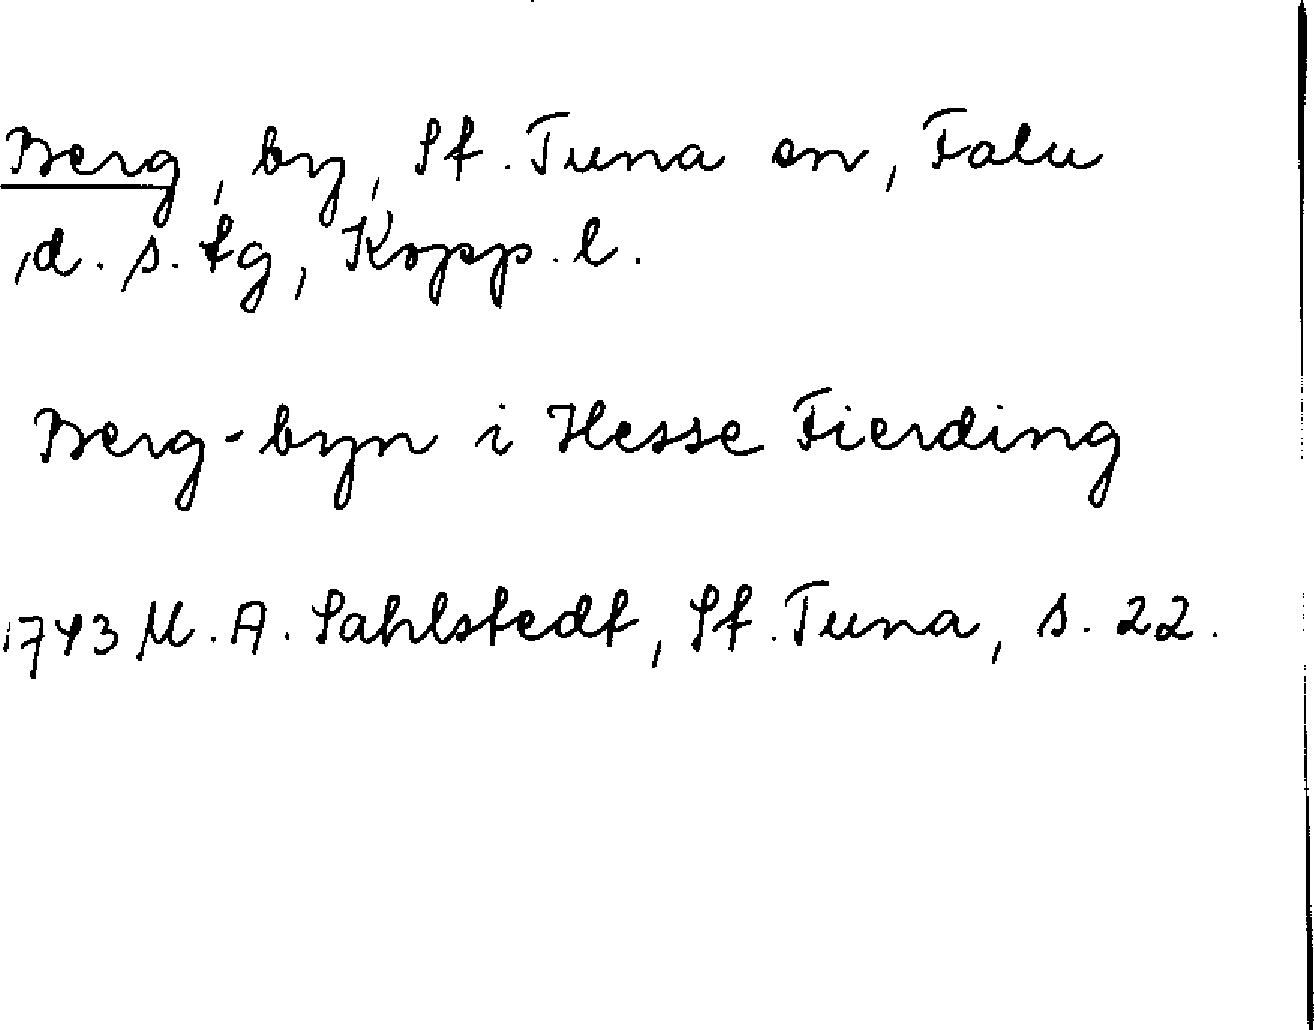 Berg, by, St. Tuna sn, Falu
d. s. tg, Kopp. l.
Berg-byn i Hesse Fierding
1743 M. A. Sahlstedt, St. Tuna, s. 22.